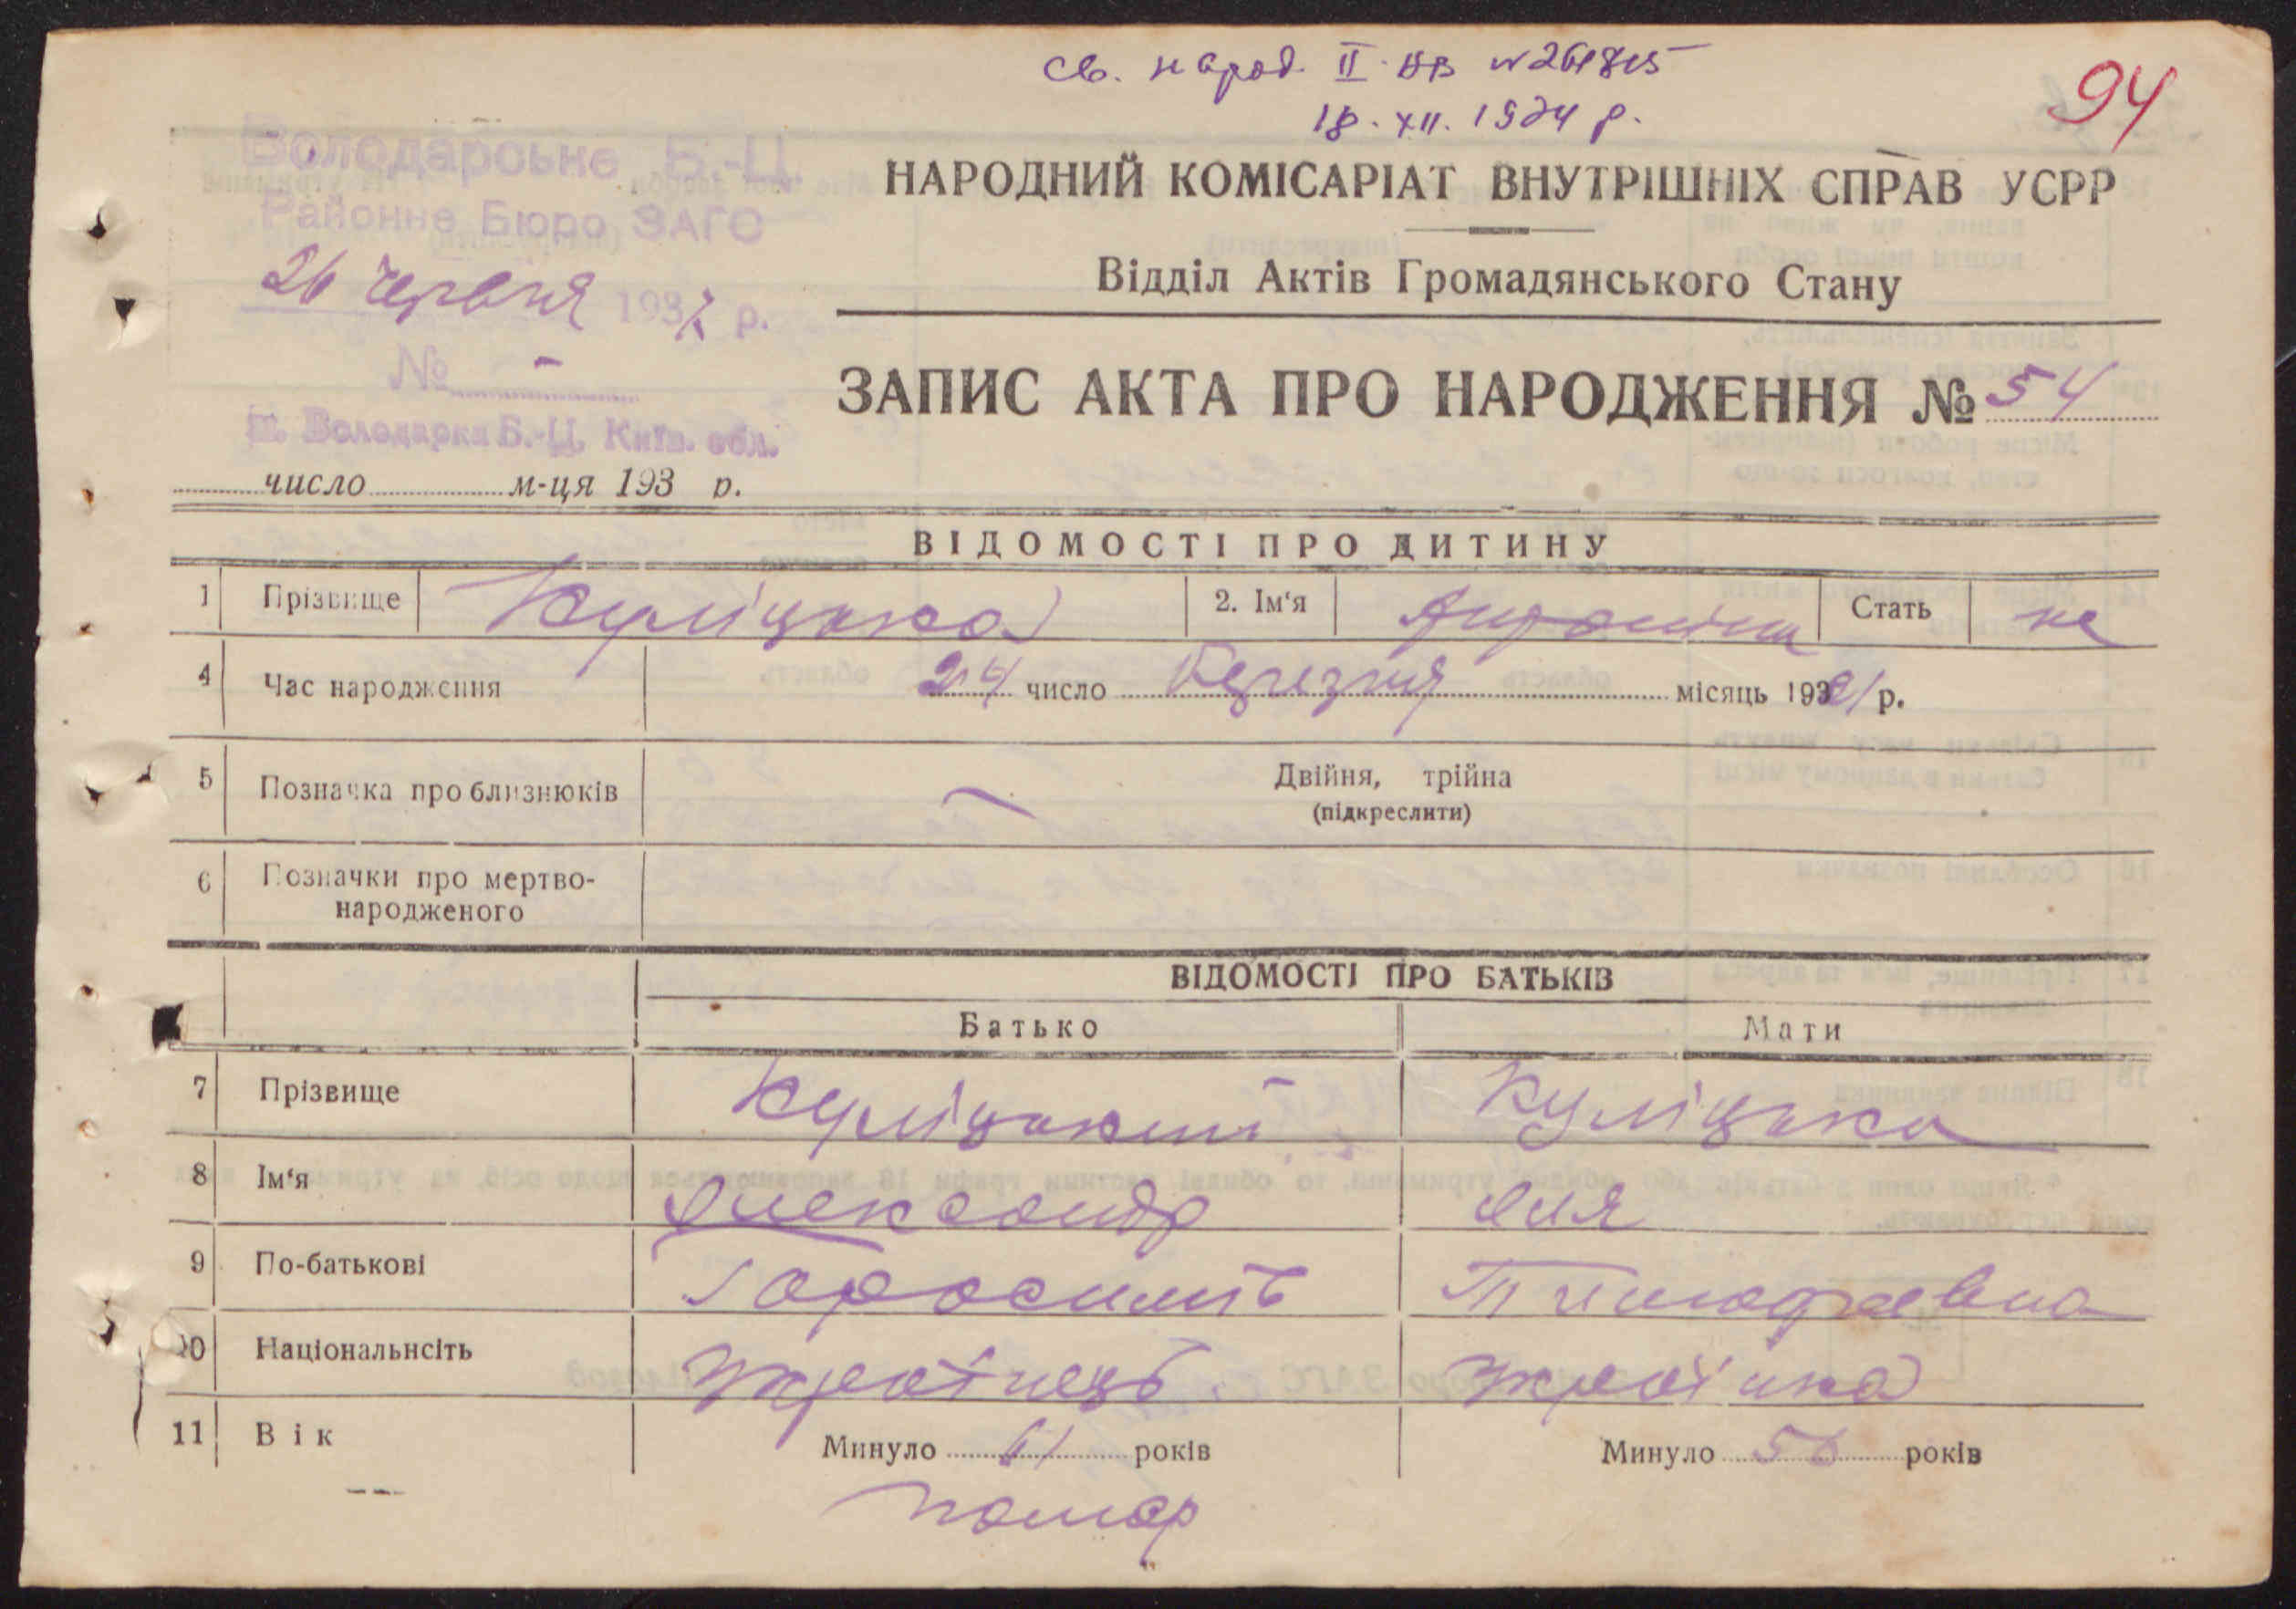 Св. народ. II-АВ №261815
18.XII.1974 р.
94
Володарське Б.-Ц.
Районне Бюро ЗАГС
26 червня 1937 р.
№ -
м. Володарка Б.-Ц. Київ. обл.
число м-ця 193 р.
НАРОДНИЙ КОМІСАРІАТ ВНУТРІШНІХ СПРАВ УСРР
Відділ Актів Громадянського Стану
ЗАПИС АКТА ПРО НАРОДЖЕННЯ № 54
ВІДОМОСТІ ПРО ДИТИНУ
1 Прізвище Куліцька 2. Ім'я Антоніна Стать же
4 Час народження 24 число Березня місяць 1921 р.
5 Позначка про близнюків — Двійня, трійна
(підкреслити)
6 Позначки про мертво-
народженого
ВІДОМОСТІ ПРО БАТЬКІВ
Батько Мати
7 Прізвище Куліцький Куліцька
8 Ім'я Олександр Юля
9 По-батькові Тимофаевна
10 Національнсіть Українець Українка
11 Вік Минуло 61 років Минуло 56 років
помер